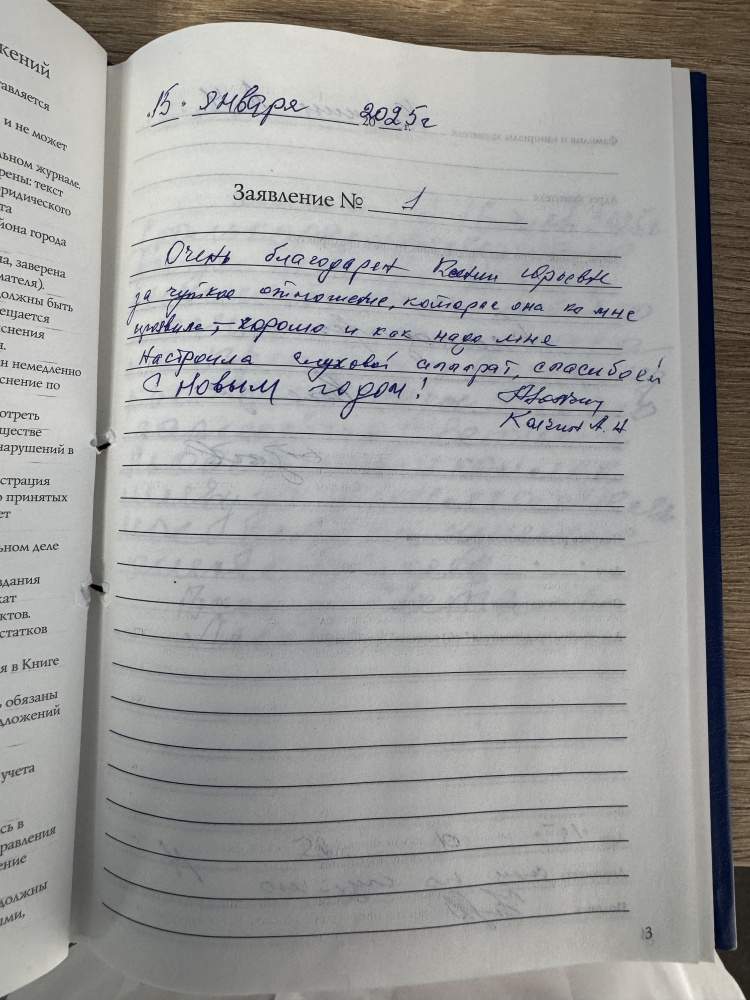 жений
тавляется
и не может
льном журнале.
рены: текст
ридического
та
йона города
на, заверена
мателя).
должны быть
ещается
снения
н.
ен немедленно
снение по
отреть
ществе
нарушений в
страция
о принятых
ет
ьном деле
здания
кат
ктов.
статков
я в Книге
ь обязаны
дложений
учета
сь в
равления
ение
должны
ыми,
15. января 2025 г
Заявление № 1
Очень благодарен Ксении Юрьевне
за чуткое отношение, которое она ко мне
проявила, хорошо и как надо мне
настроила слуховой аппарат, спасибо ей!
С Новым годом!
А. Н
3